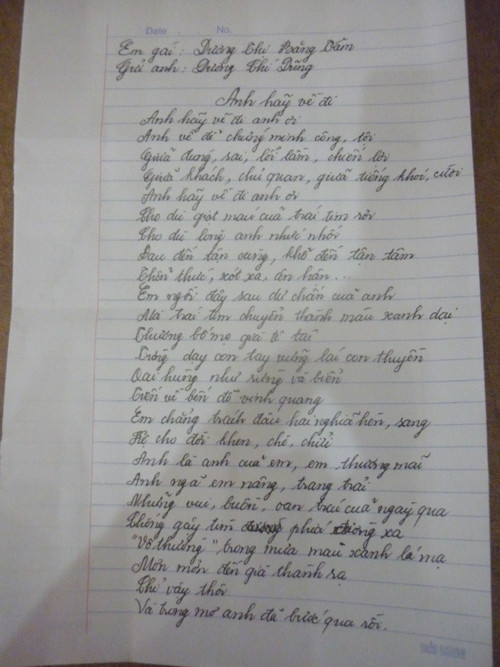 Date . No.
Em gái : Dương Thị Bằng Tâm
Gửi anh : Dương Chí Dũng
Anh hãy về đi
Anh hãy về đi anh ơi
Anh về để chứng minh công, tội
Giữa đúng, sai, lỗi lầm, chiến lợi
Giữa khách, chủ quan, giữa tiếng khóc, cười
Anh hãy về đi anh ơi
Cho dù giọt máu của trái tim rơi
Cho dù lòng anh nhức nhối
Đau đến tận cùng, khổ đến tận tâm
Thổn thức, xót xa, ân hận ...
Em ngồi đây sau dư chấn của anh
Mà trái tim chuyển thành màu xanh dại
Thương bố mẹ già tê tái
Trông dạy con tay vững lái con thuyền
Oai hùng như sóng và biển
Tiến về bến đỗ vinh quang
Em chẳng trách đâu hai nghĩa hèn, sang
Kệ cho đời khen, chê, chửi
Anh là anh của em, em thương mãi
Anh ngã em nâng, trang trải
Những vui, buồn, oan trái của ngày qua
Không gây tím phía xa
"Vô thường", trong mưa màu xanh lá mạ
Mơn mởn đến già thanh sạ
Chỉ vậy thôi
Và trong mơ anh đã bước qua rồi.